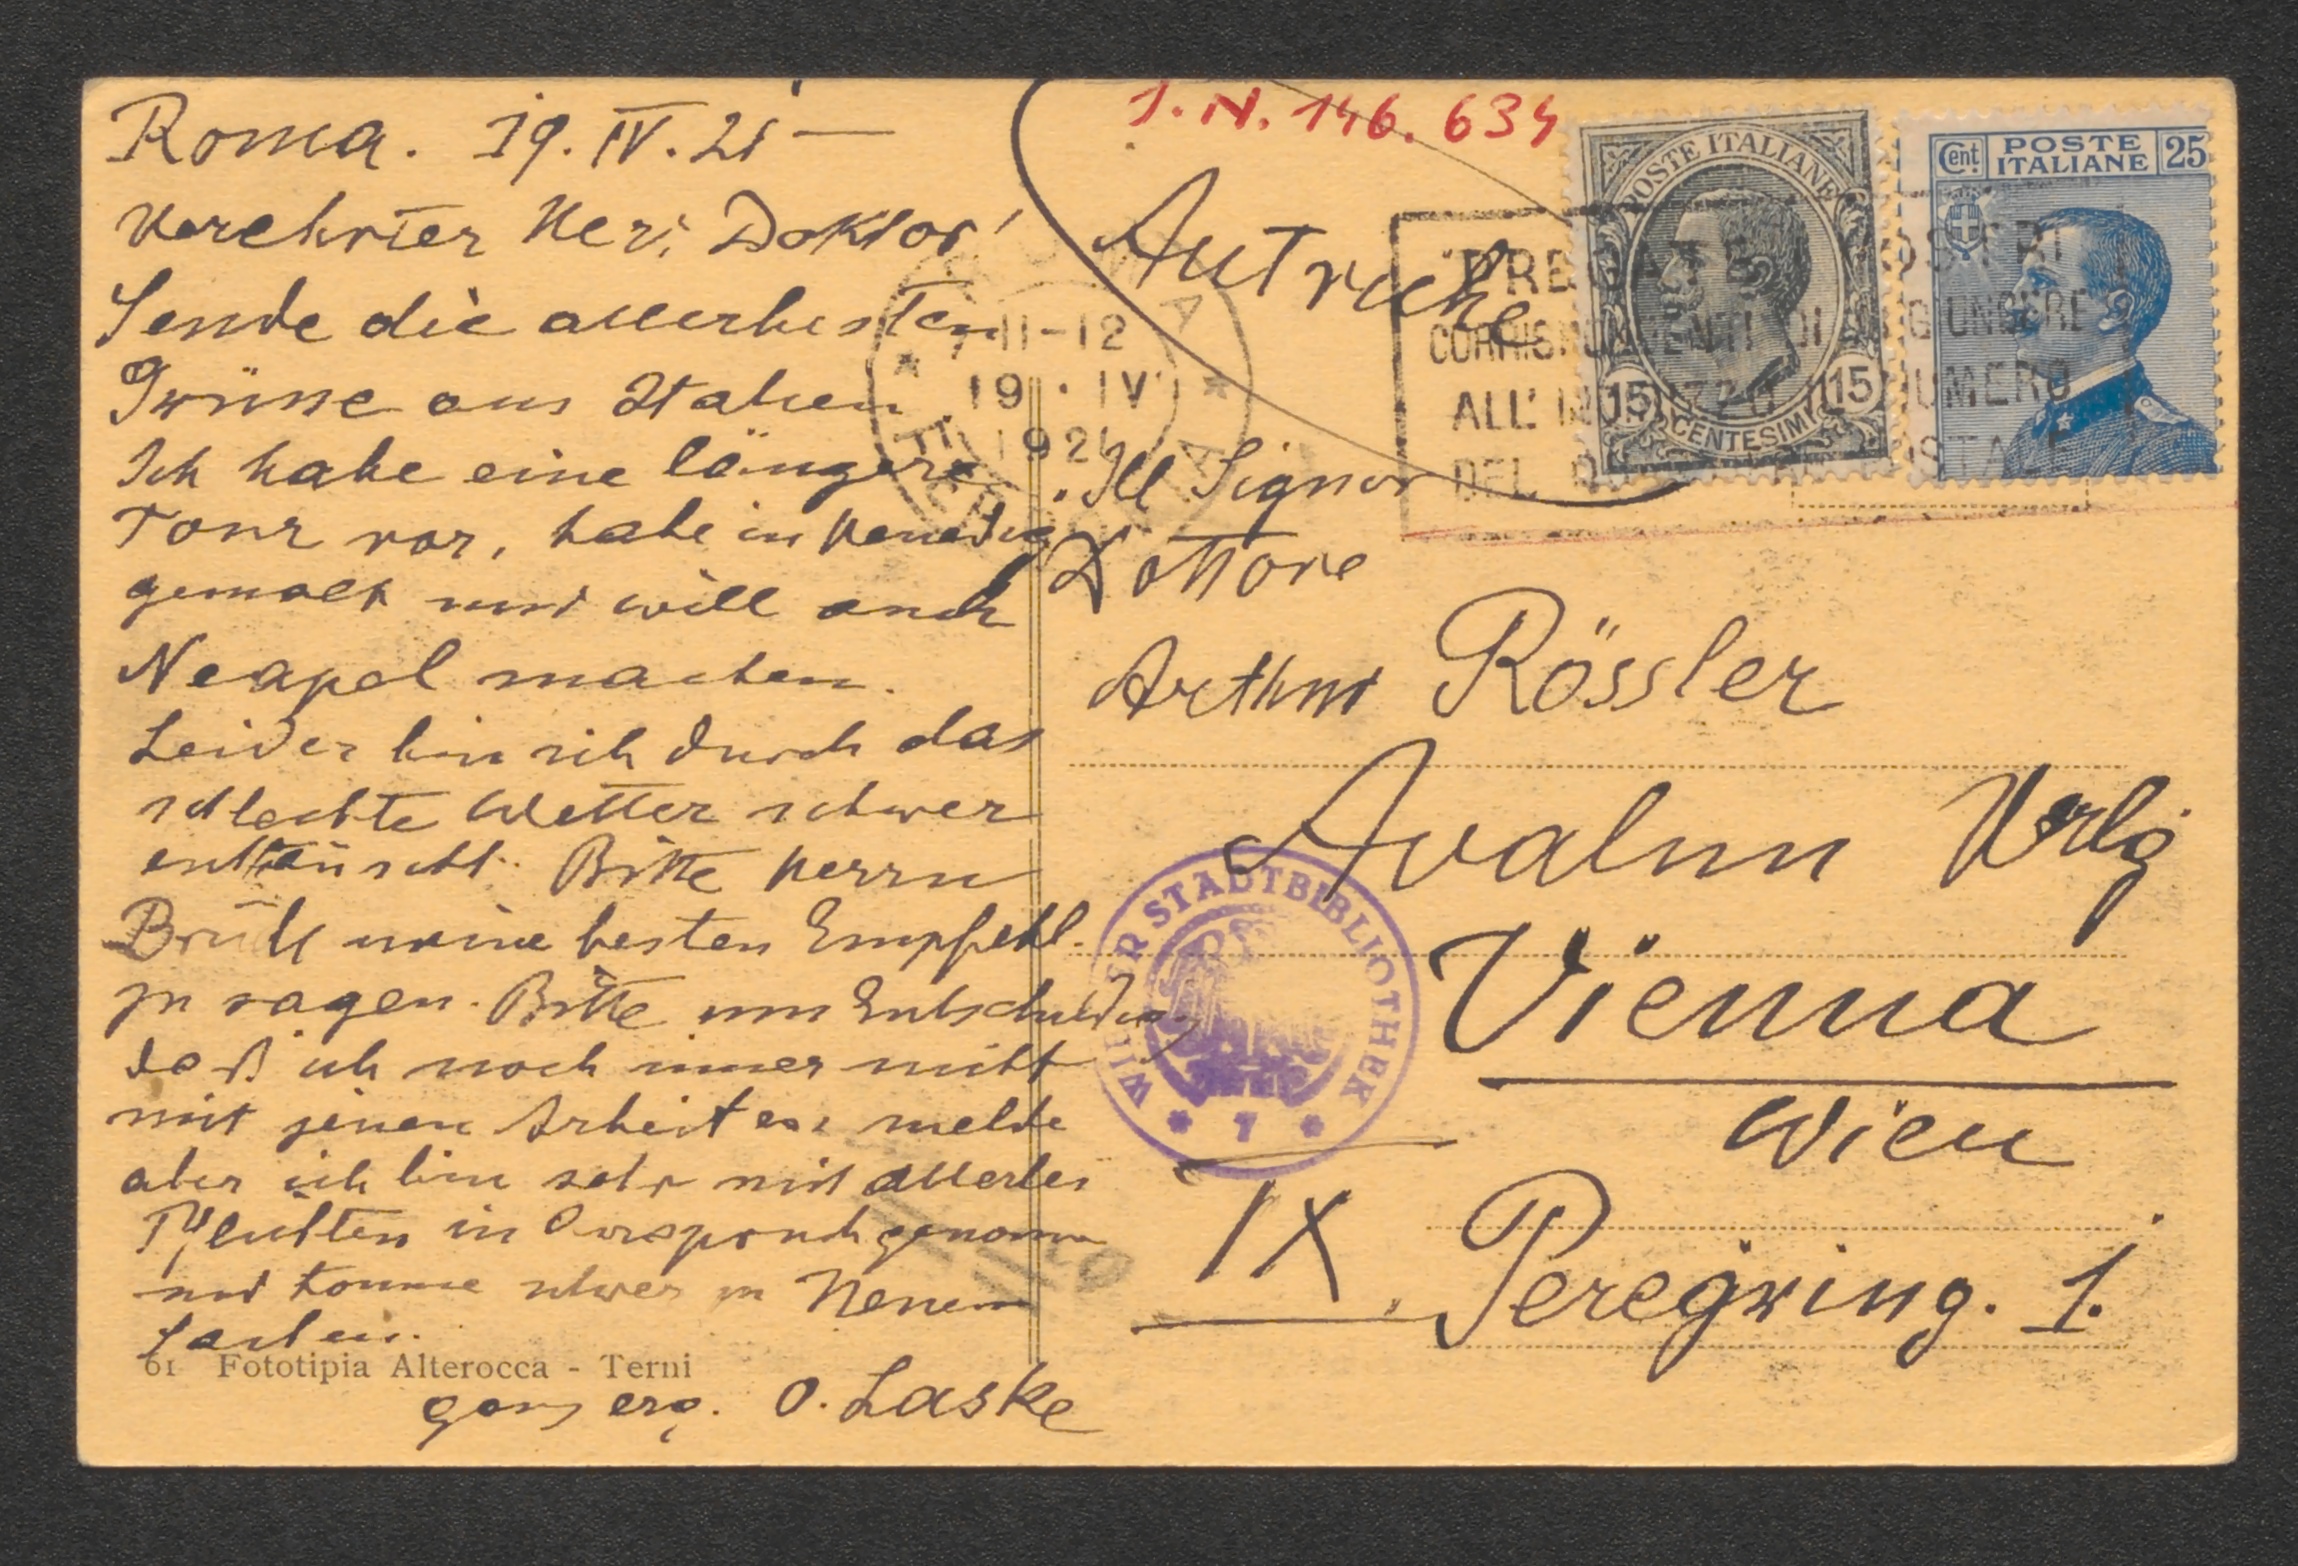 Roma. 19. IV. 21 —
Verehrter Herr Doktor!
Sende die allerbesten
Grüsse aus Italien.
Ich habe eine längere
Tour vor, habe in Venedig
gemalt und will auch
Neapel machen.
Leider bin ich durch das
schlechte Wetter schwer
enttäuscht. Bitte Herrn
Brüll meine besten Empfehl.
zu sagen. Bitte um Entschuldig
daß ich noch immer nicht
mit jenen Arbeiten melde
aber ich bin sehr mit allerlei
Pflichten in Anspruch genomm
und komme schwer zu Neuen
Sachen.
ganz erg. O. Laske
61 Fototipia Alterocca - Terni
J. N. 146.634
Autriche
Ill Signor
Dottore
Arthur Rössler
Avalun Verlg
Vienna
Wien
IX. Peregring. 1.
POSTE ITALIANE
15 15
CENTESIMI
Cent. POSTE ITALIANE 25
ROMA
11-12
19 · IV
1921
ALL'
DEL
NUMERO
WIENER STADTBIBLIOTHEK
* 7 *